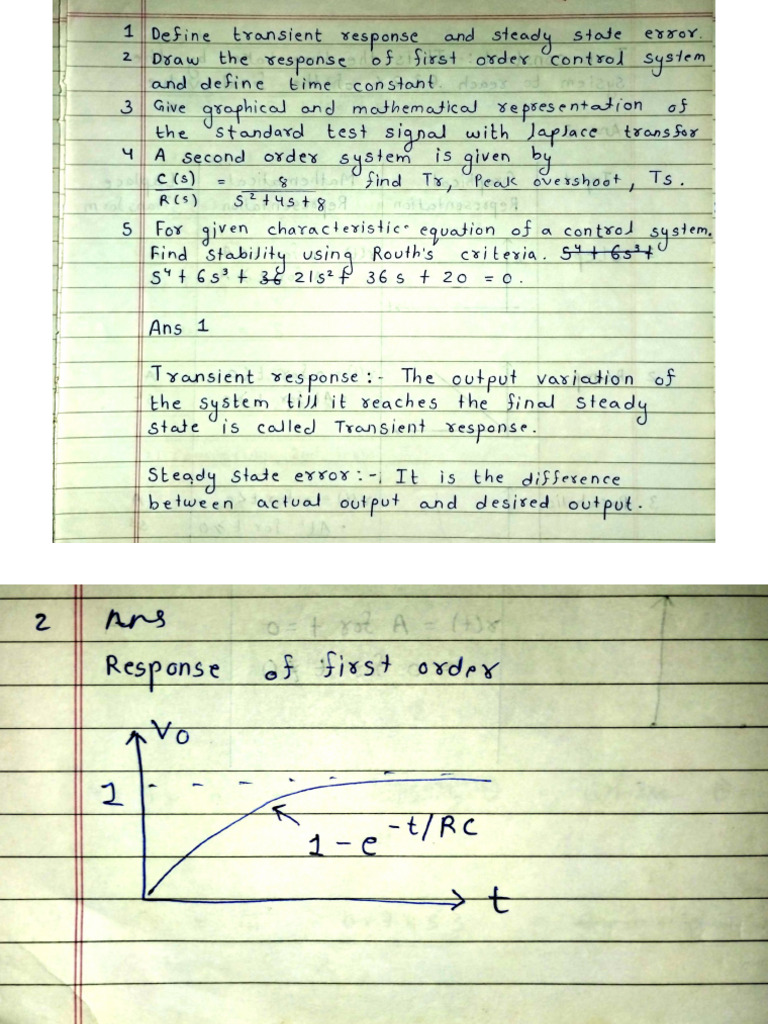 1 Define transient response and steady state error.
2 Draw the response of first order control system
and define time constant
3 Give graphical and mathematical representation of
the standard test signal with laplace transfor
4 A second order system is given by
C(s) = 8 find Tr, Peak overshoot, Ts.
R(s) S²+4S+8
5 For given characteristic equation of a control system.
Find stability using Routh's criteria. S⁴ + 6S³ +
S⁴ + 6S³ + 36 21S² + 36S + 20 = 0.
Ans 1
Transient response :- The output variation of
the system till it reaches the final steady
state is called Transient response.
Steady state error :- It is the difference
between actual output and desired output.
2 Ans
Response of first order
Vo
1
1-e^-t/RC
t